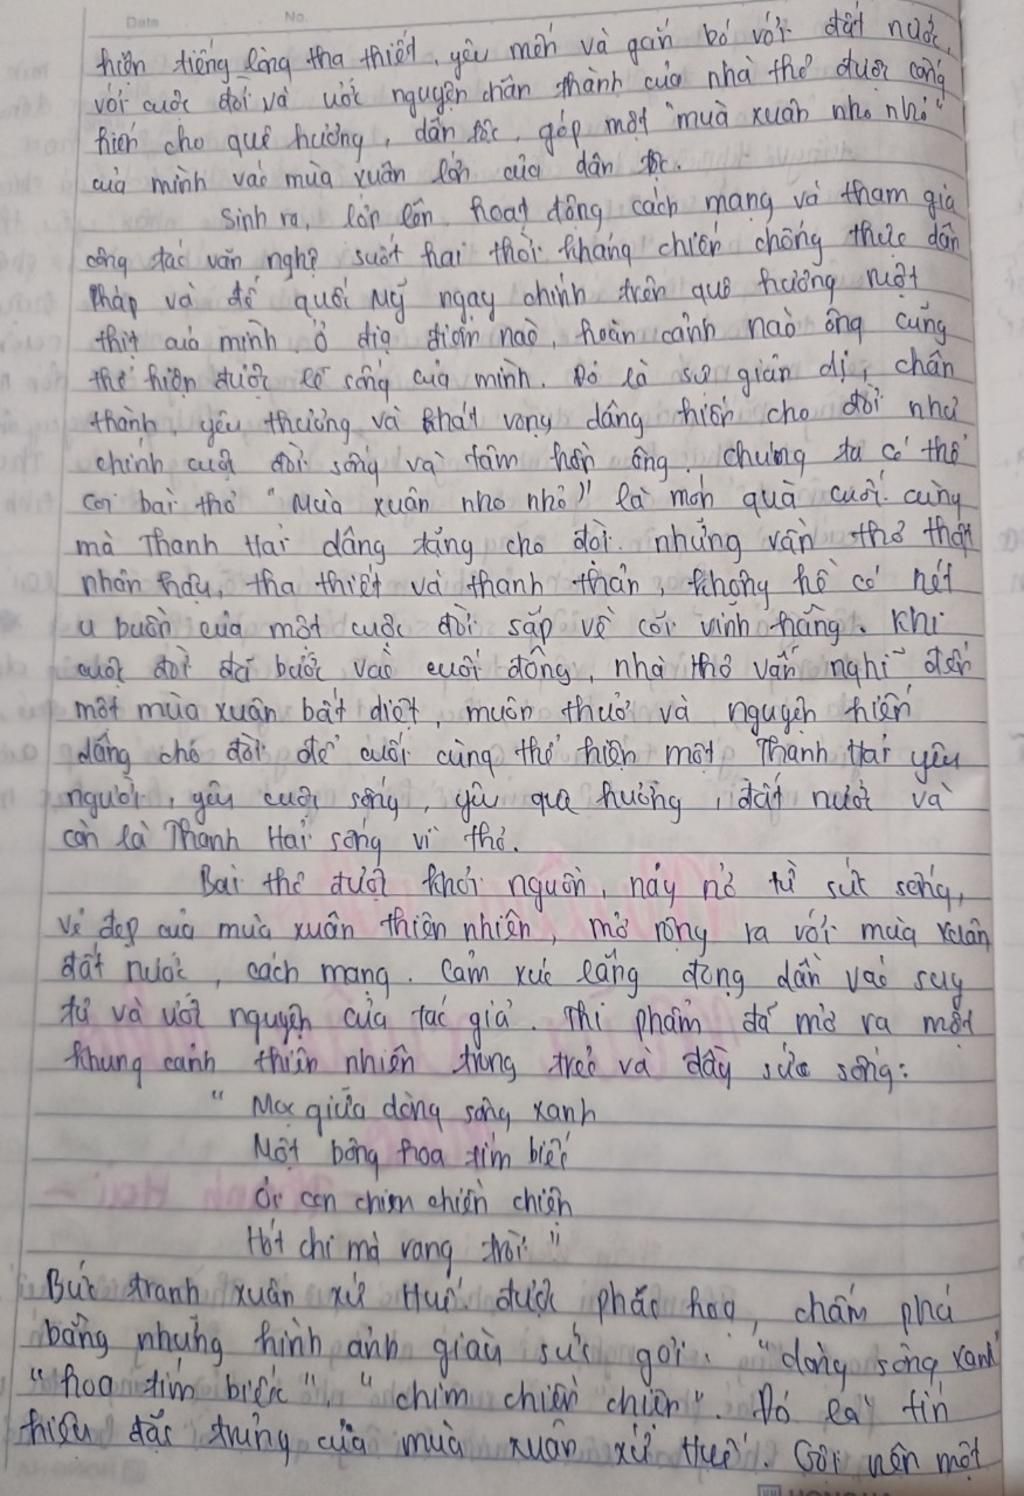 Date No.
hiện tiếng lòng tha thiết, yêu mến và gắn bó với đất nước,
với cuộc đời và ước nguyện chân thành của nhà thơ được cống
hiến cho quê hương, dân tộc, góp một "mùa xuân nho nhỏ"
của mình vào mùa xuân lớn của dân tộc.
Sinh ra, lớn lên, hoạt động cách mạng và tham gia
công tác văn nghệ suốt hai thời kháng chiến chống thực dân
Pháp và đế quốc Mỹ ngay chính trên quê hương ruột
thịt của mình, ở địa điểm nào, hoàn cảnh nào ông cũng
thể hiện được lẽ sống của mình. Đó là sự giản dị, chân
thành, yêu thương và khát vọng dâng hiến cho đời như
chính cuộc đời sống và tâm hồn ông. Chúng ta có thể
coi bài thơ "Mùa xuân nho nhỏ" là món quà cuối cùng
mà Thanh Hải dâng tặng cho đời. những vần thơ thật
nhân hậu, tha thiết và thanh thản, không hề có nét
u buồn của một cuộc đời sắp về cõi vĩnh hằng. Khi
cuộc đời đã bước vào cuối đông, nhà thơ vẫn nghĩ đến
một mùa xuân bất diệt, muôn thuở và nguyện hiến
dâng cho đời để cuối cùng thể hiện một Thanh Hải yêu
người, yêu cuộc sống, yêu quê hương, đất nước và
còn là Thanh Hải sống vì thơ.
Bài thơ được khơi nguồn, nảy nở từ sức sống,
vẻ đẹp của mùa xuân thiên nhiên, mở rộng ra với mùa xuân
đất nước, cách mạng. Cảm xúc lắng đọng dần vào suy
tư và ước nguyện của tác giả. Thi phẩm đã mở ra một
khung cảnh thiên nhiên trong trẻo và đầy sức sống:
" Mọc giữa dòng sông xanh
Một bông hoa tím biếc
Ơi con chim chiền chiện
Hót chi mà vang trời "
Bức tranh xuân xứ Huế được phác hoạ, chấm phá
bằng những hình ảnh giàu sức gợi. "dòng sông xanh"
"hoa tím biếc", "chim chiền chiện". Đó là tín
hiệu đặc trưng của mùa xuân xứ Huế. Gợi nên một